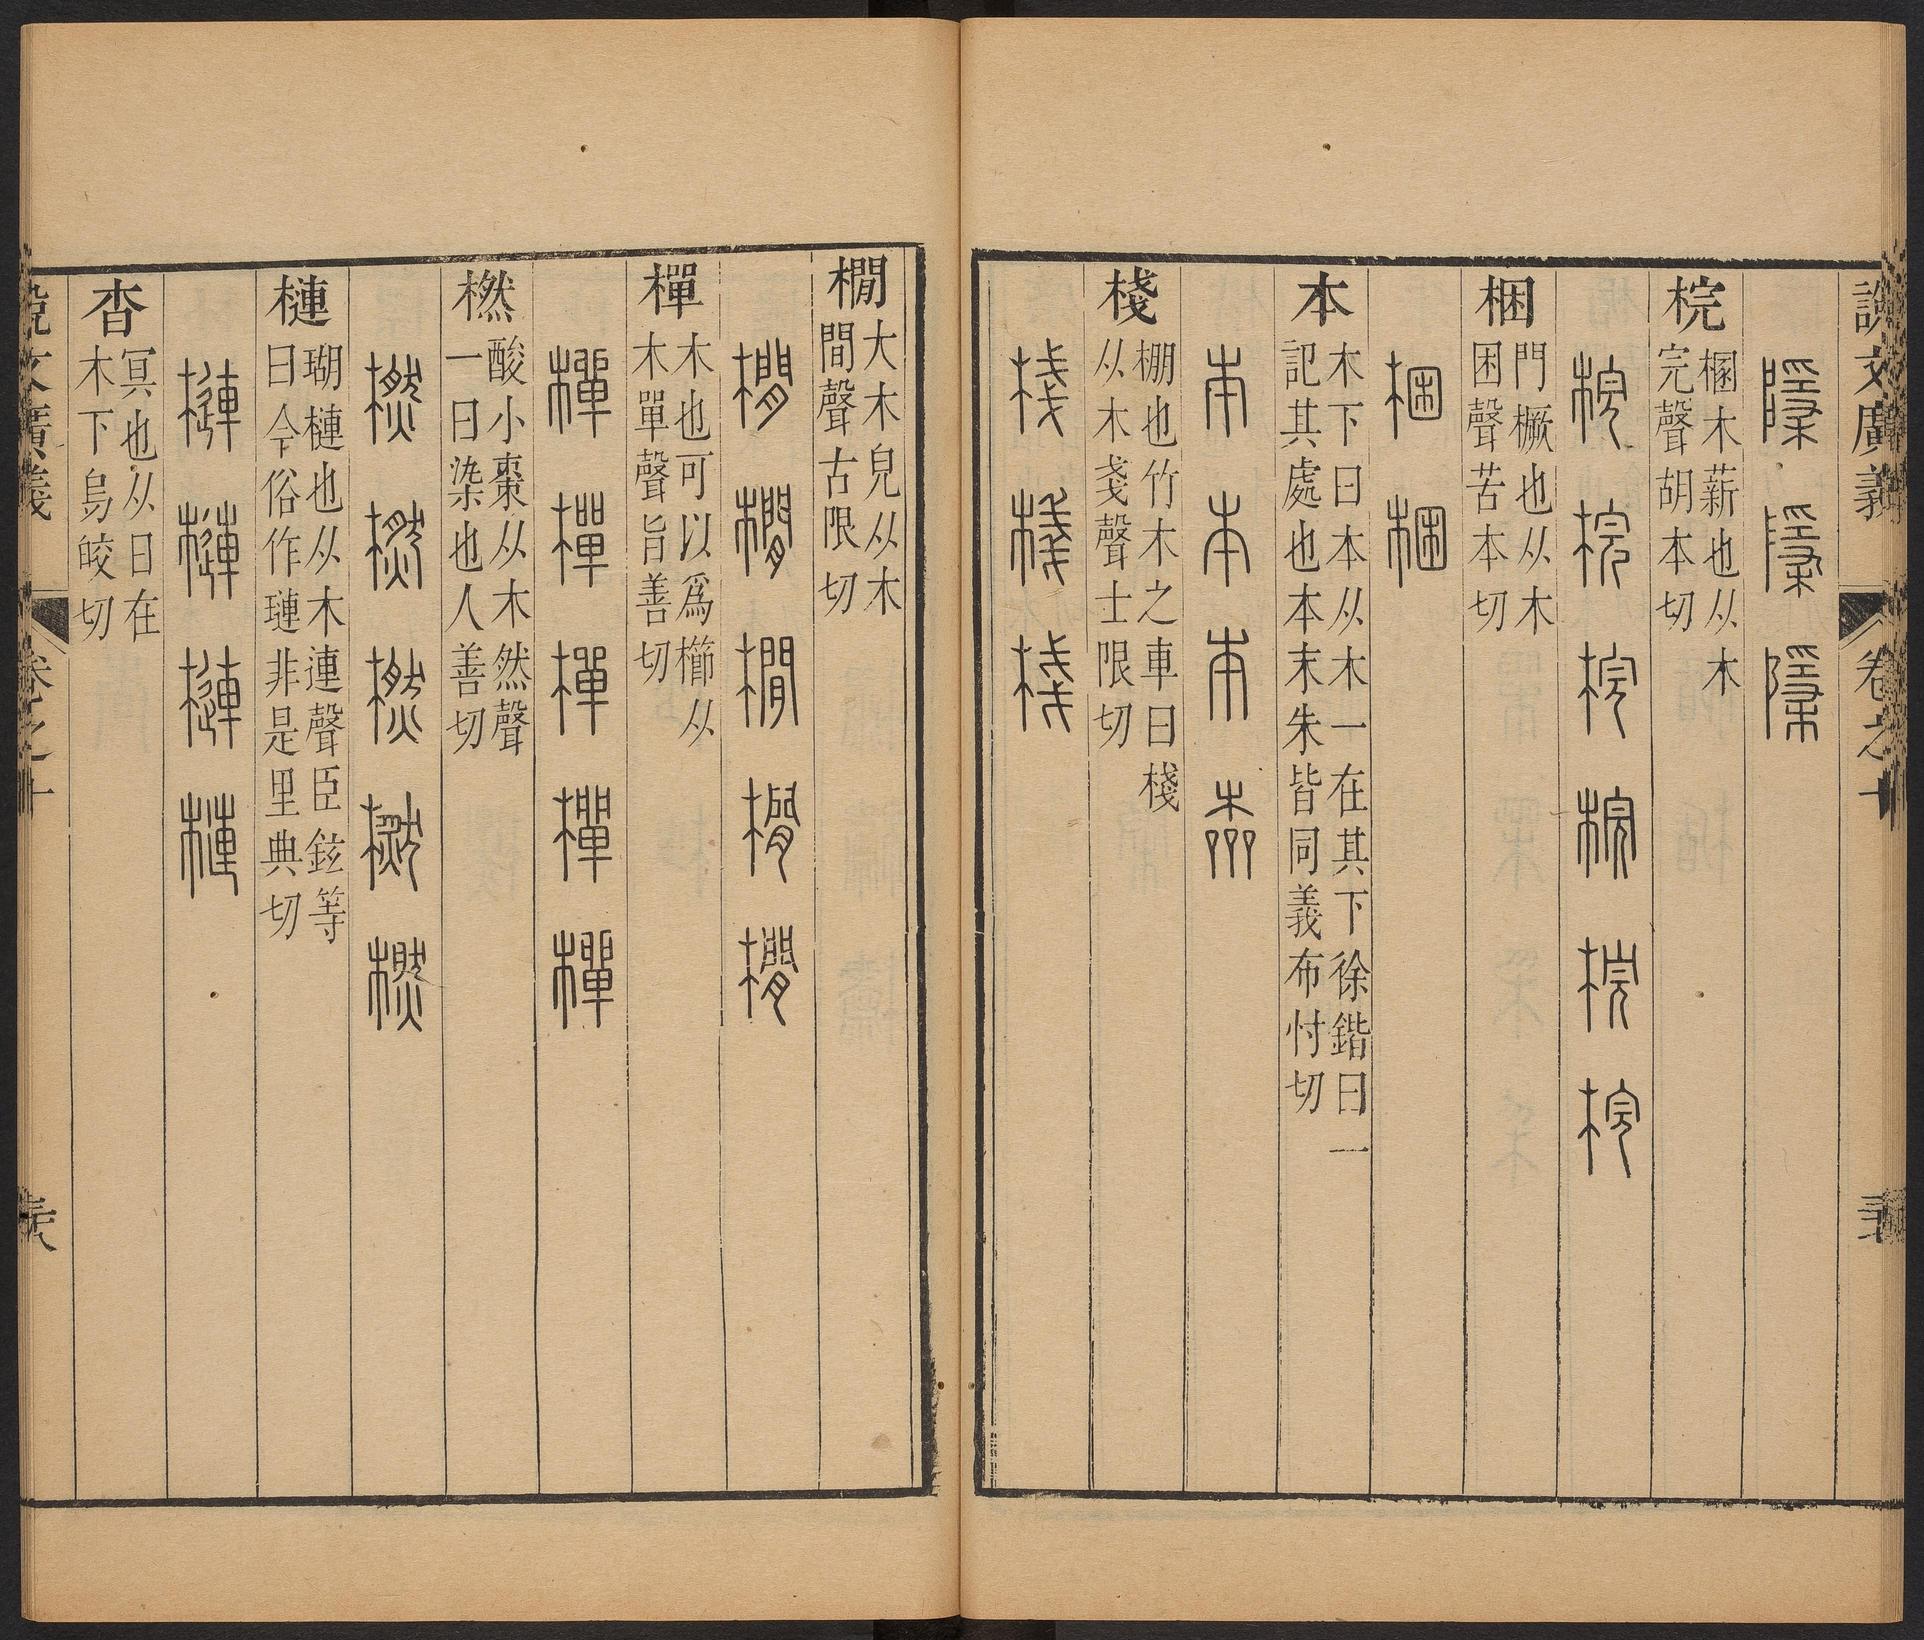 說文廣義 卷之十
梡 棞木薪也从木
完聲胡本切
梡 梡 梡 梡 梡 梡
梱 門橛也从木
困聲苦本切
梱 梱
本 木下曰本从木一在其下徐鍇曰一
記其處也本末朱皆同義布忖切
本 本 本 本
棧 棚也竹木之車曰棧
从木戔聲士限切
棧 棧 棧
橌 大木皃从木
閒聲古限切
橌 橌 橌 橌 橌
樿 木也可以爲櫛从
木單聲旨善切
樿 樿 樿 樿 樿
橪 酸小棗从木然聲
一曰染也人善切
橪 橪 橪 橪 橪
槤 瑚槤也从木連聲臣鉉等
曰今俗作璉非是里典切
槤 槤 槤 槤
杳 冥也从日在
木下烏皎切
說文廣義 卷之十